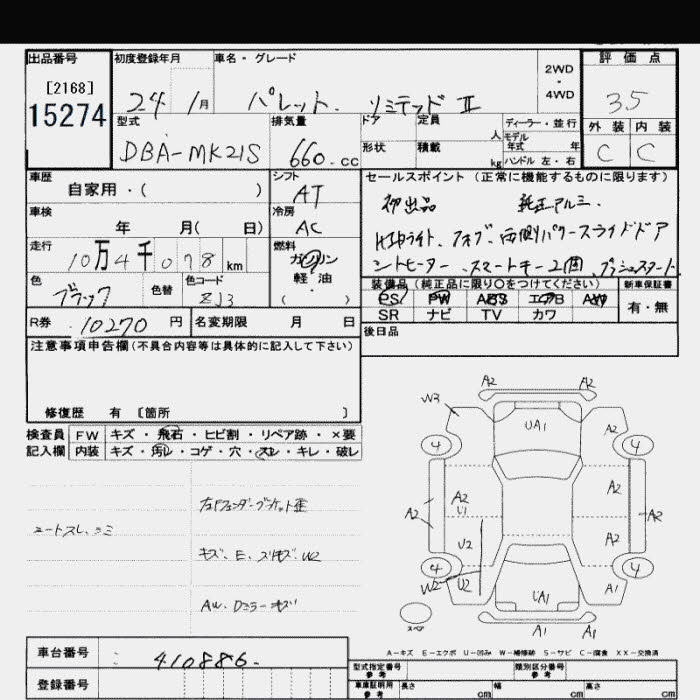 出品番号 初度登録年月 車名・グレード 2WD・4WD 評価点
[2168]
15274
24年 1月 パレット. リミテッド II 35
型式 排気量 ドア 定員 人 ディーラー・並行 外装 内装
DBA-MK21S 660.cc 形状 積載 kg モデル年式 年 ハンドル 左・右 C C
車歴 シフト セールスポイント (正常に機能するものに限ります)
自家用・( ) AT
初出品 純正アルミ.
車検 冷房
年 月( 日) AC
HIDライト、フォグ、両側パワースライドドア
走行 燃料
10万4千078km ガソリン
シートヒーター、スマートキー2個、プッシュスタート
軽油
( )
色 色替 色コード
ブラック ZJ3
装備品 (純正品に限り○をつけてください) 新車保証書
PS PW ABS エアB AW 有・無
SR ナビ TV カワ
R券 10270円 名変期限 月 日
後日品
注意事項申告欄(不具合内容等は具体的に記入して下さい)
修復歴 有 [箇所 ]
検査員 FW キズ・飛石・ヒビ割・リペア跡・×要
記入欄 内装 キズ・汚レ・コゲ・穴・スレ・キレ・破レ
キズ、E、スリキズ、W2
AW、Dミラーキズ
A2 A2
W3
UA1
4 4
A2 A2
U1
A2 A2
U2 A2
4 4
W2 U2 UA1 A1
スペア
A1 A1
A-キズ E-エクボ U-凹み W-補修跡 S-サビ C-腐食 XX-交換済
車台番号 410886.
登録番号
型式指定番号 参考 類別区分番号 参考
車庫証明用 参考 長さ cm 幅 cm 高さ cm